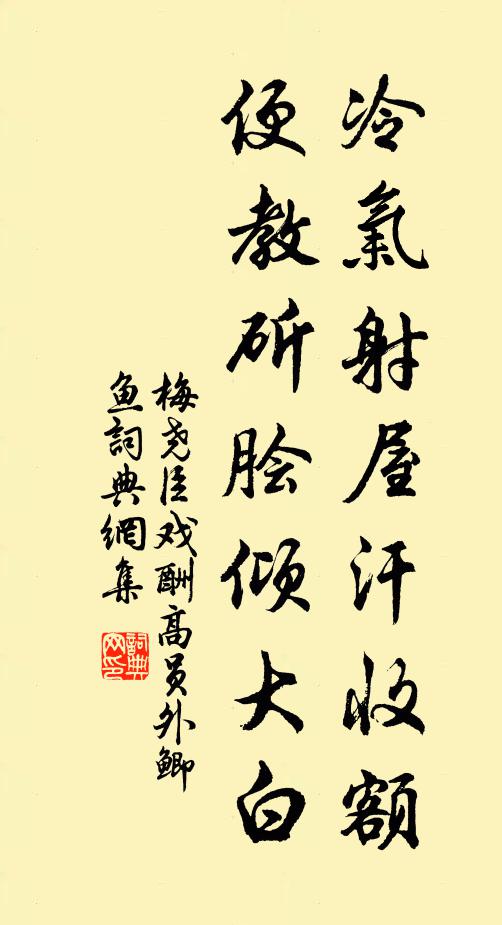 冷氣射屋汗收額
便教斫脍傾大白
梅尧臣戏酬高员外鲫
魚詞典網集
詞典
网印